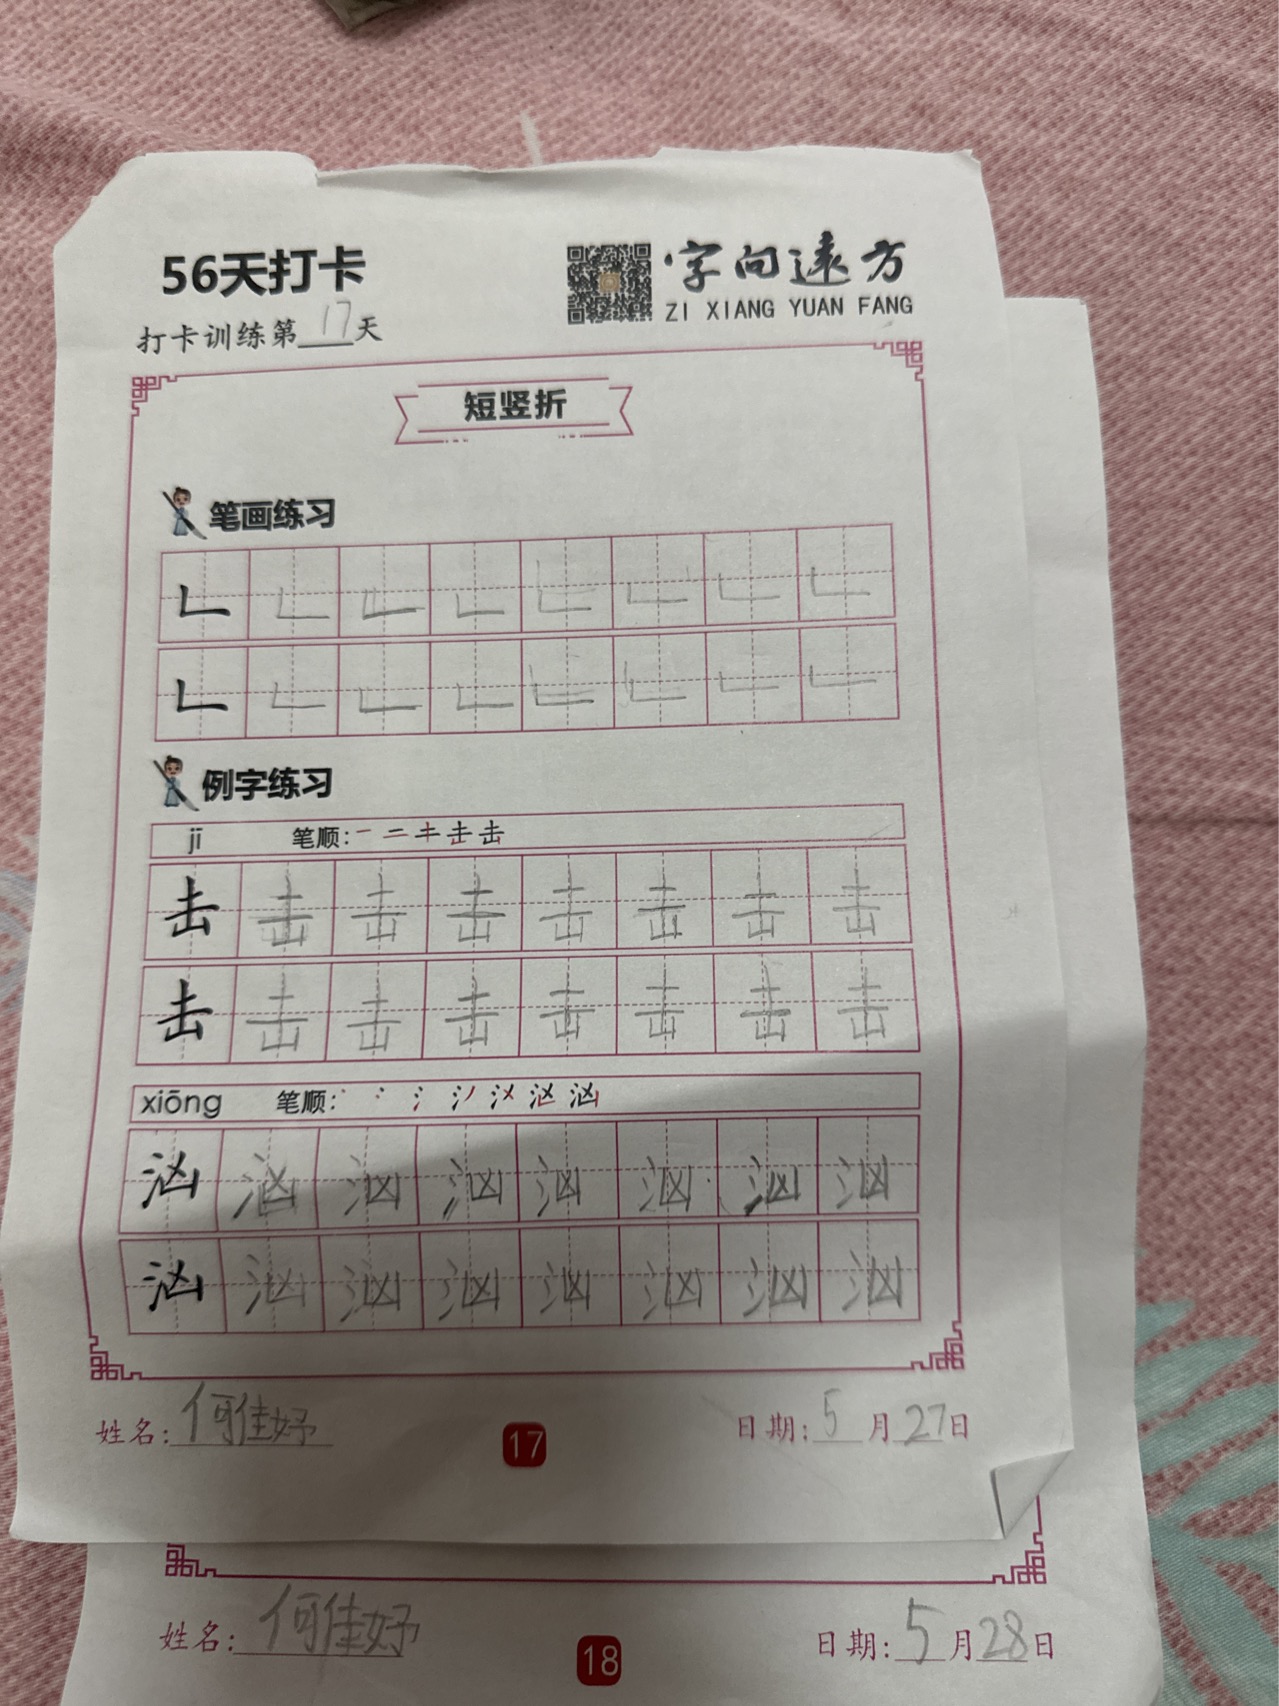 56天打卡
字向远方
ZI XIANG YUAN FANG
打卡训练第17天
短竖折
笔画练习
𠃊 𠃊 𠃊 𠃊 𠃊 𠃊 𠃊 𠃊
𠃊 𠃊 𠃊 𠃊 𠃊 𠃊 𠃊 𠃊
例字练习
jī 笔顺:
击 击 击 击 击 击 击 击
击 击 击 击 击 击 击 击
xiōng 笔顺:
汹 汹 汹 汹 汹 汹 汹 汹
汹 汹 汹 汹 汹 汹 汹 汹
姓名:何佳妤 17 日期:5月27日
姓名:何佳妤 18 日期:5月28日